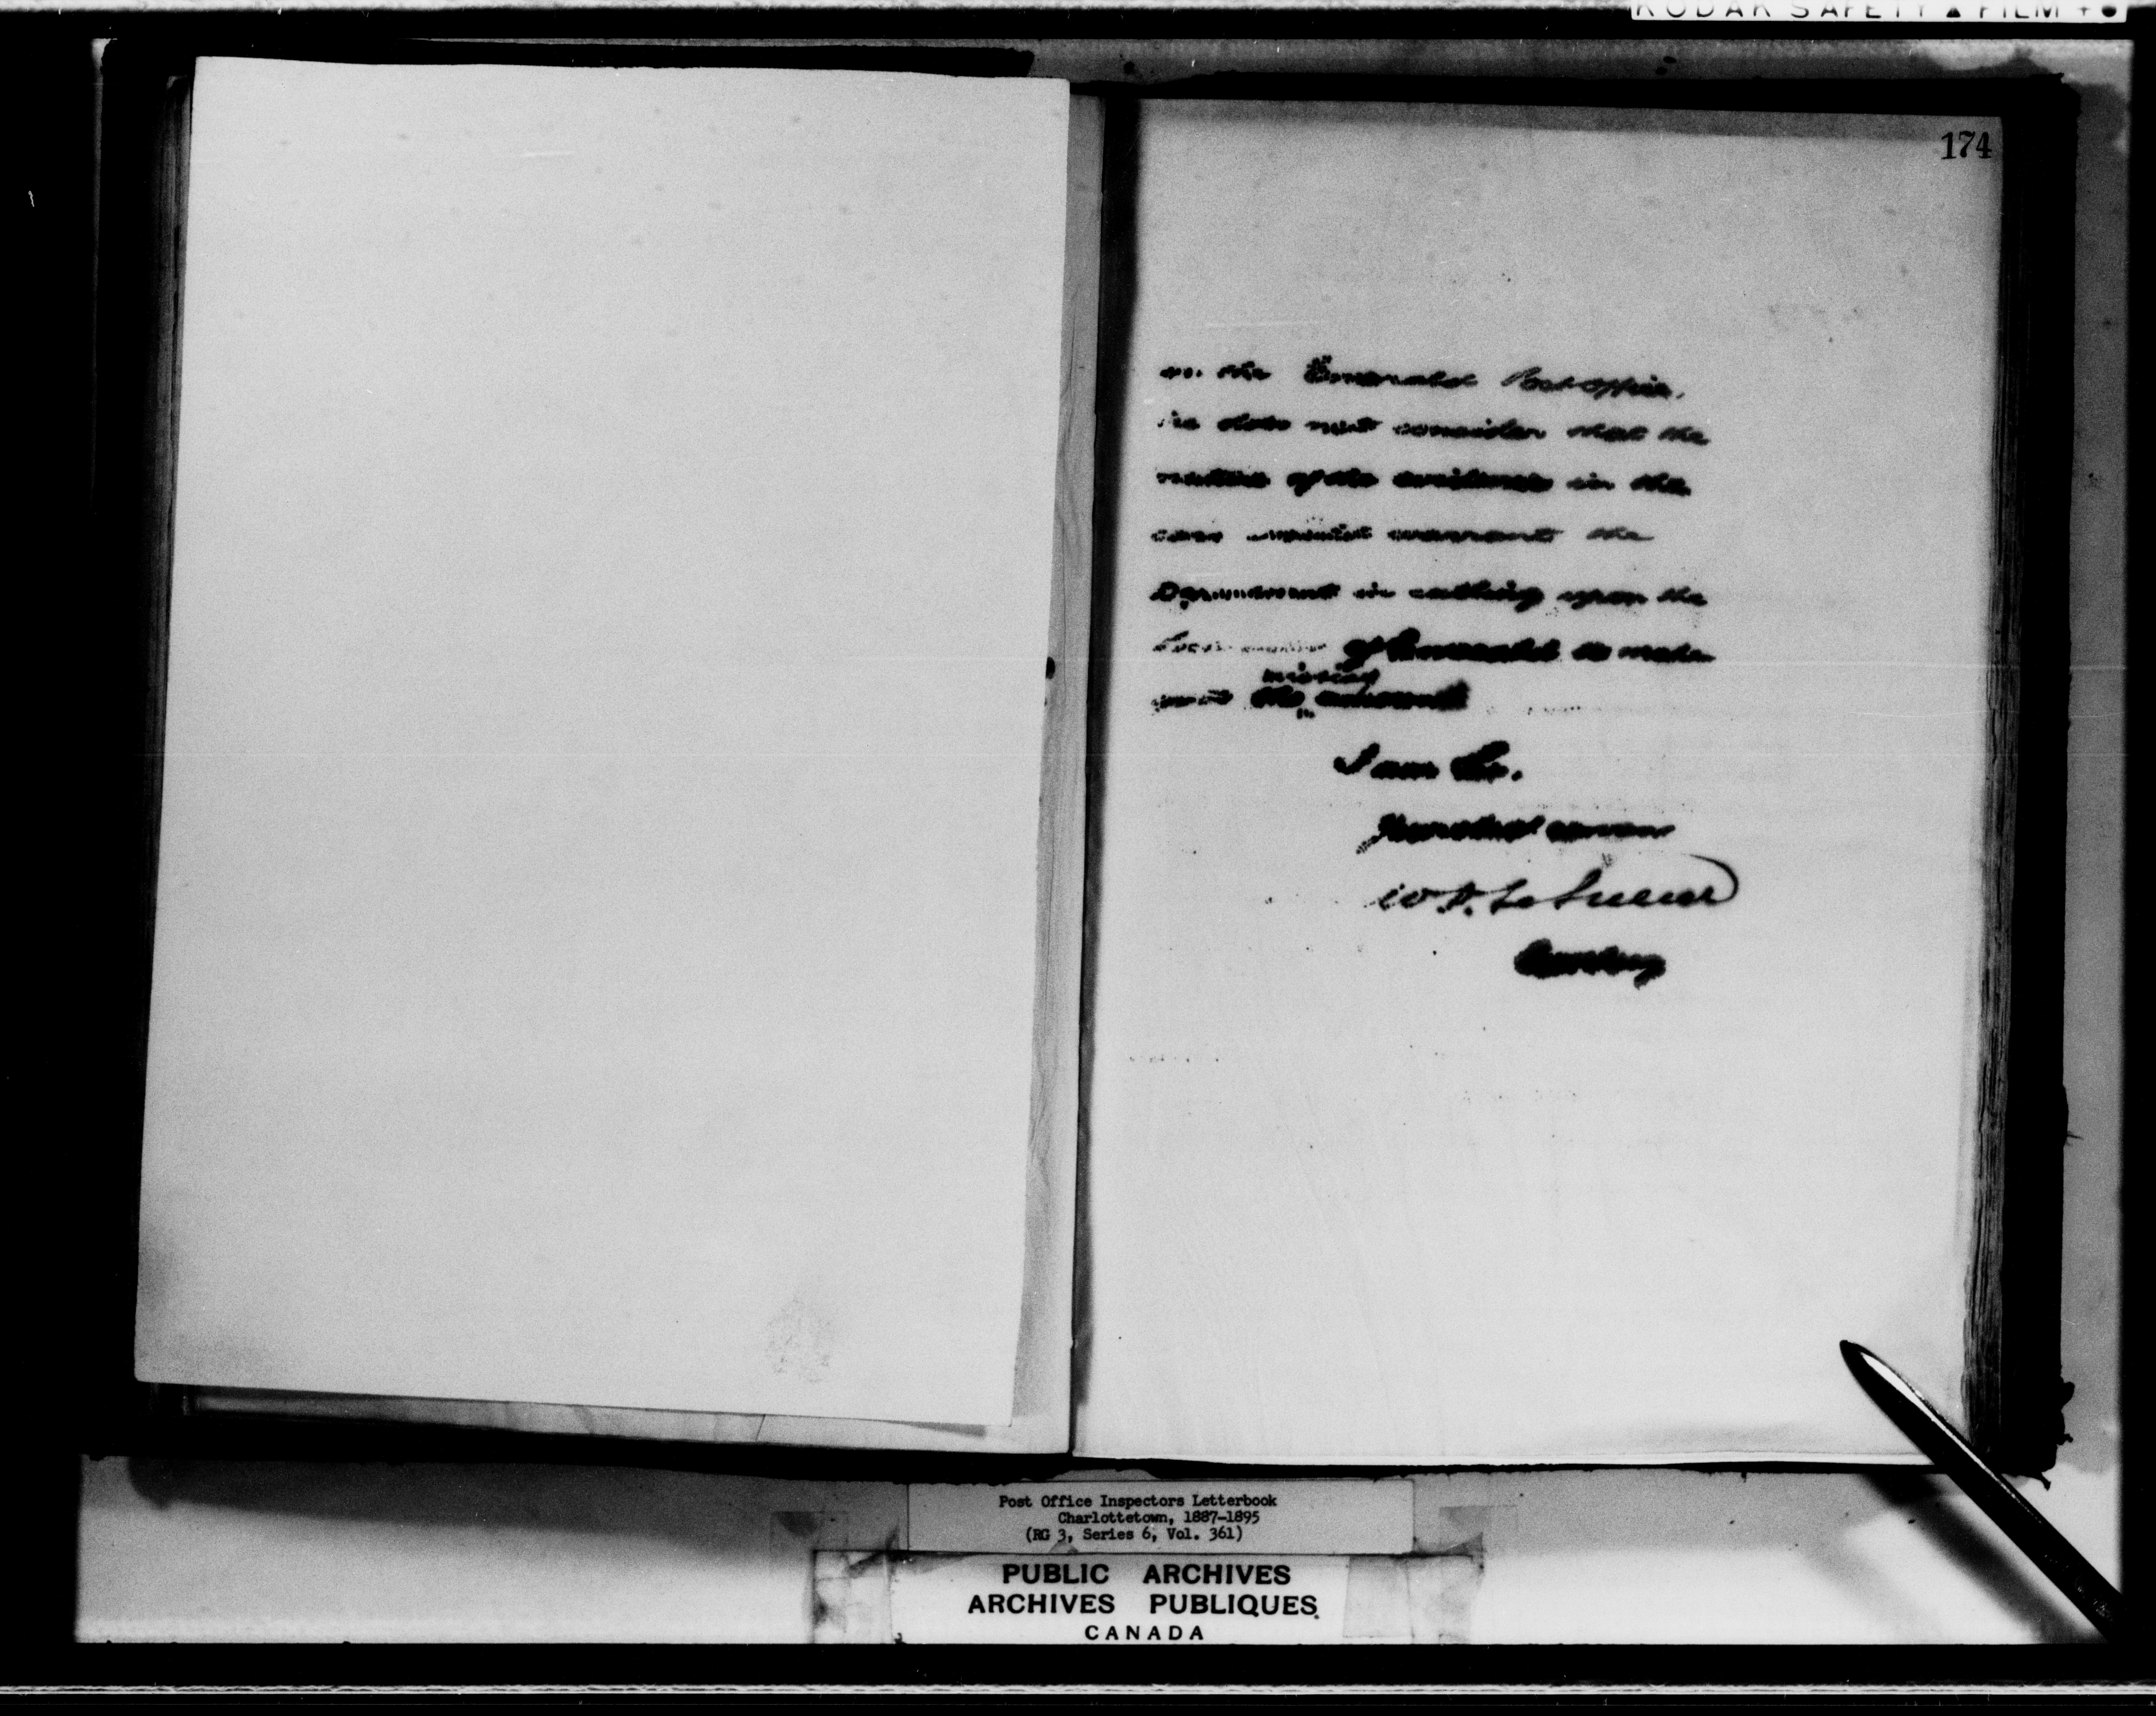 KODAK SAFETY ▲ FILM + ●
174
the Emerald Post Office,
he does not consider that the
nature of the evidence in the
case would warrant the
Department in calling upon the
of Emerald to make
missing
good the amount
I am Sir,
Your obt servan
W. D. LeSueur
Post Office Inspectors Letterbook
Charlottetown, 1887-1895
(RG 3, Series 6, Vol. 361)
PUBLIC ARCHIVES
ARCHIVES PUBLIQUES
CANADA